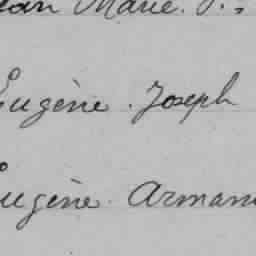 ean Marie. J.
Eugène. Joseph
Eugène. Arman